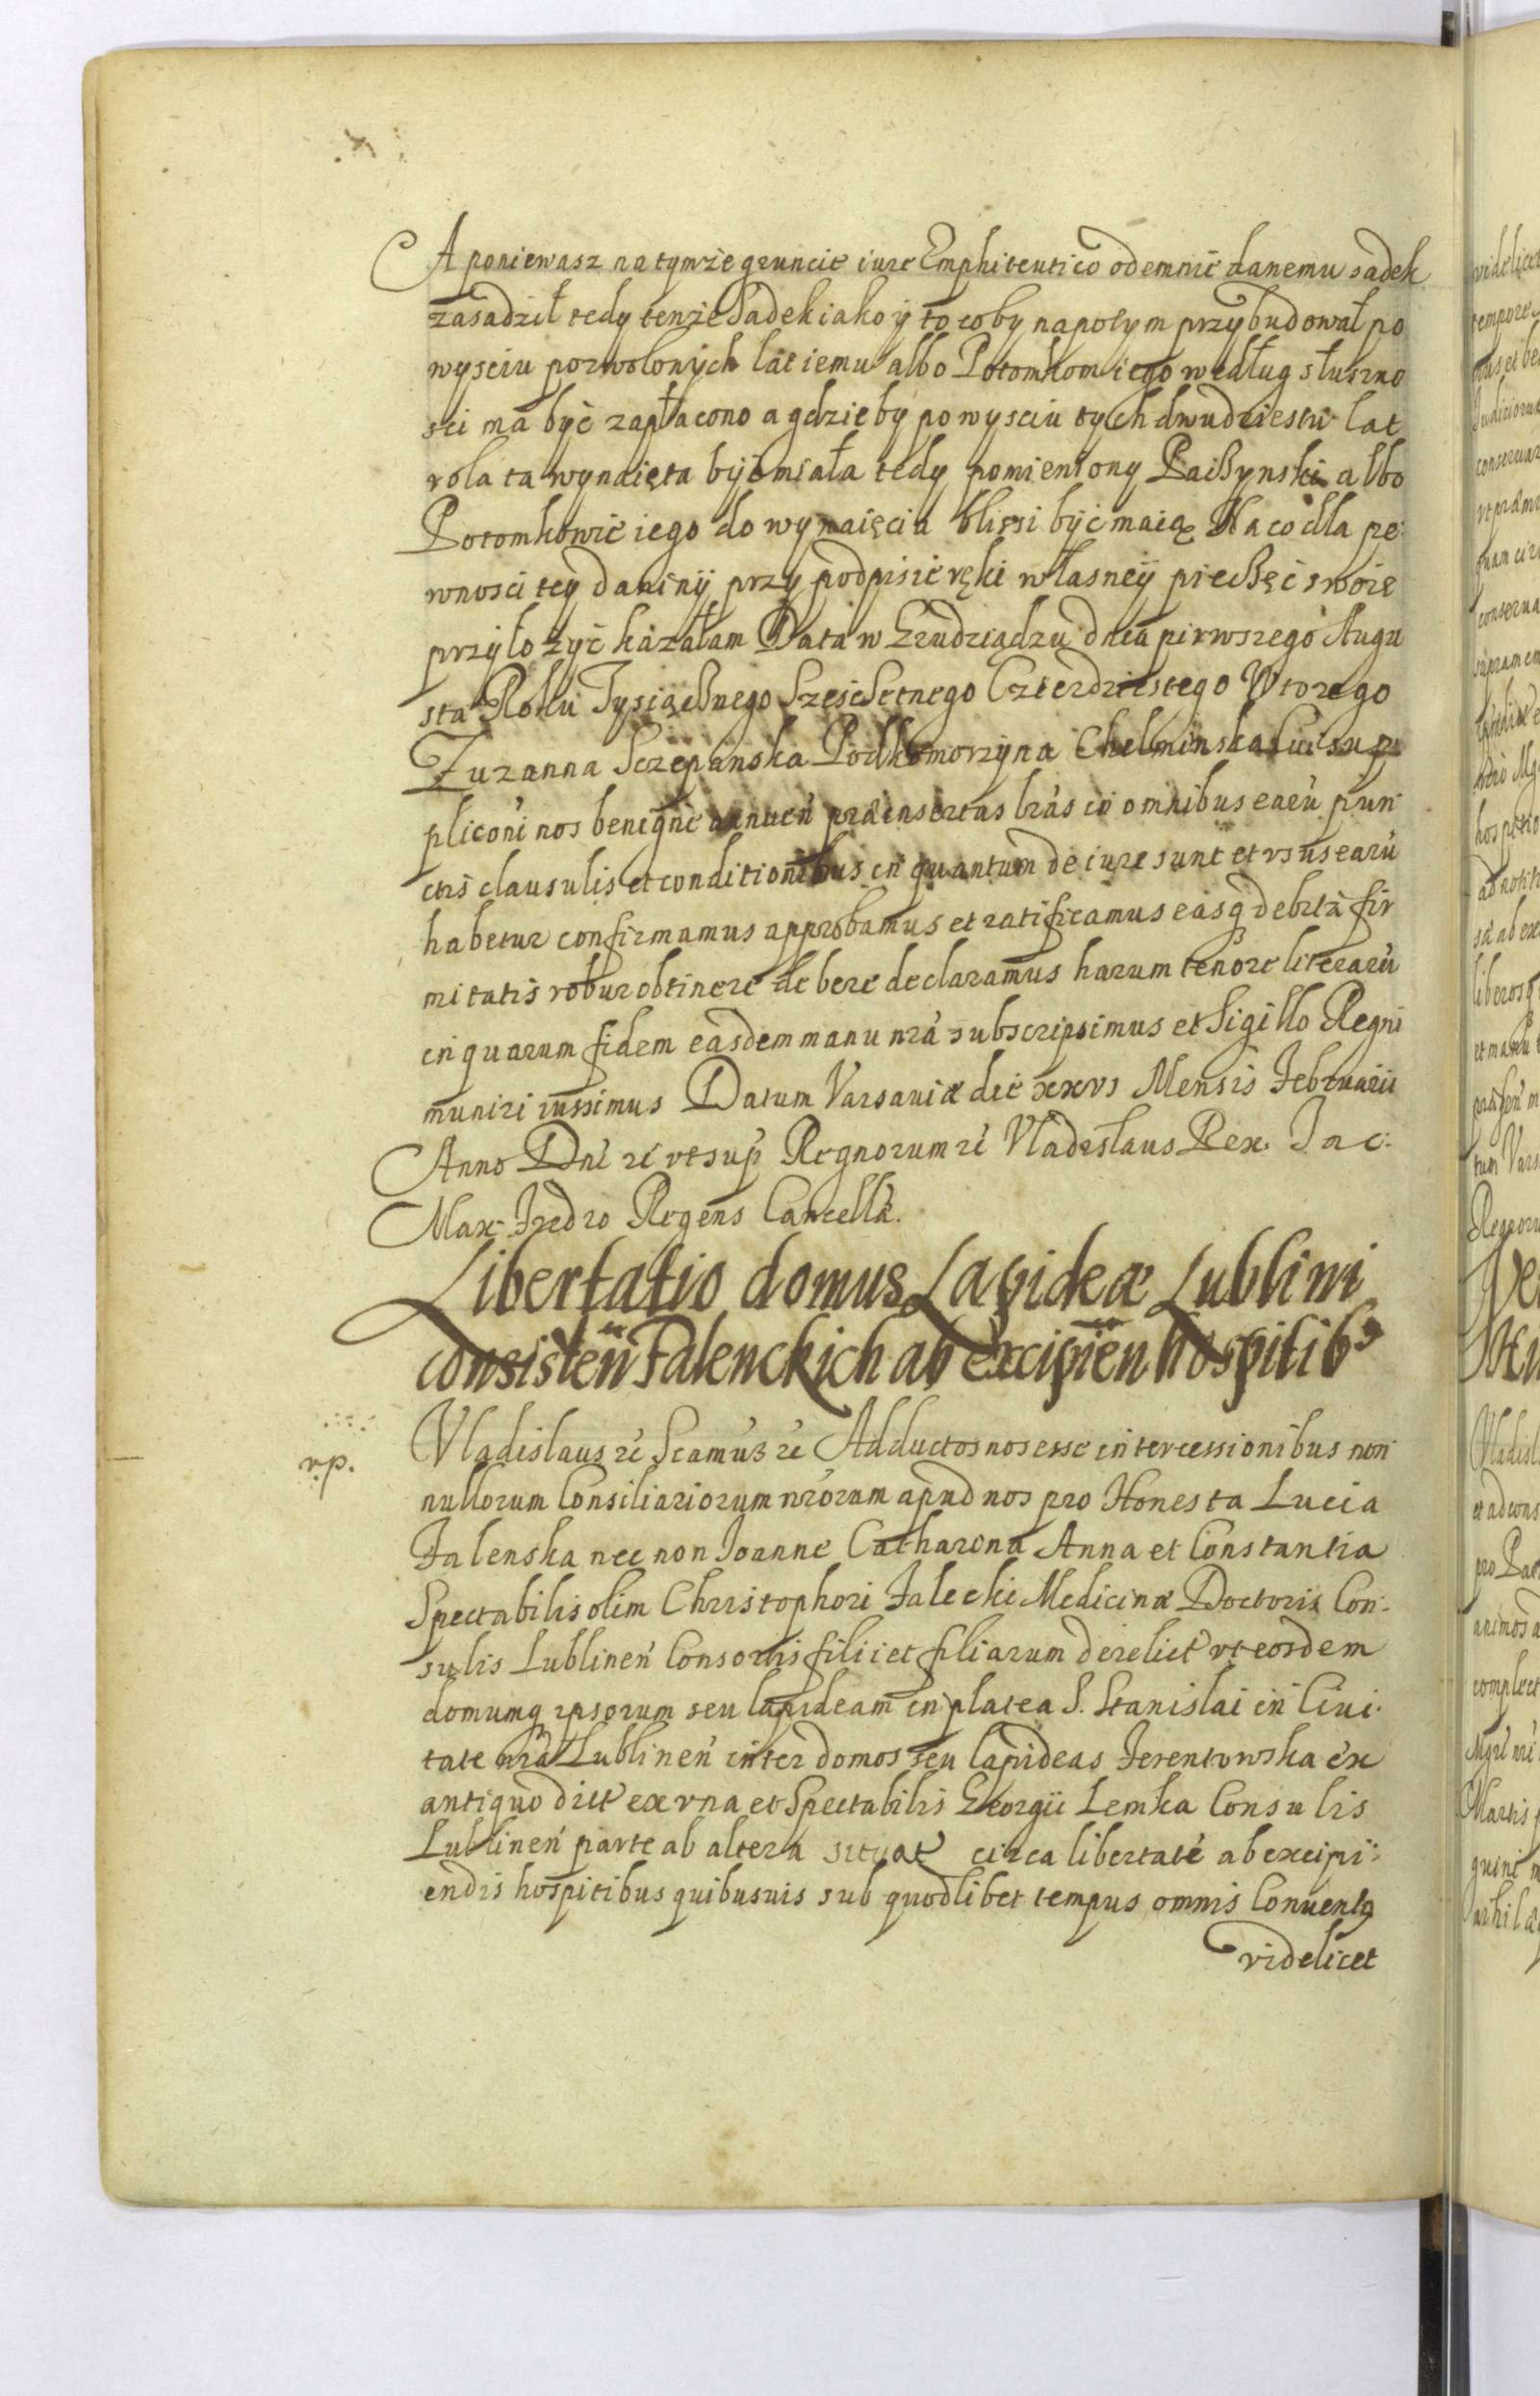 A poniewasz na tymże gruncie iure Emphiteutico odemnie danemu sadek
zasadził tedy tenże Sadek iako ÿ to coby napotym przybudował po
wysciu pozwolonÿch lat iemu albo Potomkom iego według słuszno
sci ma być zapłacono a gdzieby po wysciu tych dwudziestu lat
rola ta wynaięta bÿc miała tedy pomieniony albo
Potomkowie iego do wynaięcia bliżsi bÿć maią Na co dla pe
wnosci teÿ daninÿ przy podpisie ręki własneÿ pieczęć swoię
przyłożyć kazałam Data w Grudziądzu dnia pirwszego Augu
sta Roku Tysiącznego Szescsetnego Czterdziestego Wtorego
Zuzanna Sczepanska Podkomorzÿna Chelminska Cui sup
pliconi nos benigne annuen præinsertas lras in omnibus earu pun
ctis clausulis et conditionibus in quantum de iure sunt et usus earu
habetur confirmamus approbamus et ratificamus easq debitæ fir
mitatis robur obtinere debere declaramus harum tenore literaru
in quarum fidem easdem manu nra subscripsimus et Sigillo Regni
muniri iussimus Datum Varsaviæ die xxvi Mensis Februarii
Anno Dni ꝛc vt sup Regnorum ꝛc Vladislaus Rex. Jac:
Max: Fredro Regens Cancella.
Libertatio domus Lapideæ Lublini
consisten Falenckich ab excipien hospitib9
rp.
Vladislaus ꝛc Scamus ꝛc Adductos nos esse intercessionibus non
nullorum Consiliariorum nrorum apud nos pro Honesta Lucia
Falenska nec non Joanne Catharina Anna et Constantia
Spectabilis olim Christophori Falecki Medicinæ Doctoris Con:
sulis Lublinen Consortis filii et filiarum derelict vt eosdem
domumq ipsorum seu lapideam in platea S. Stanislai in Civi:
tate nra Lublinen inter domos seu lapideas Ferentowska ex
antiquo dict ex vna et Spectabilis Georgii Lemka Consulis
Lublinen parte ab altera situat circa libertate ab excipi:
endis hospitibus quibusuis sub quodlibet tempus omnis Conuentq
videlicet